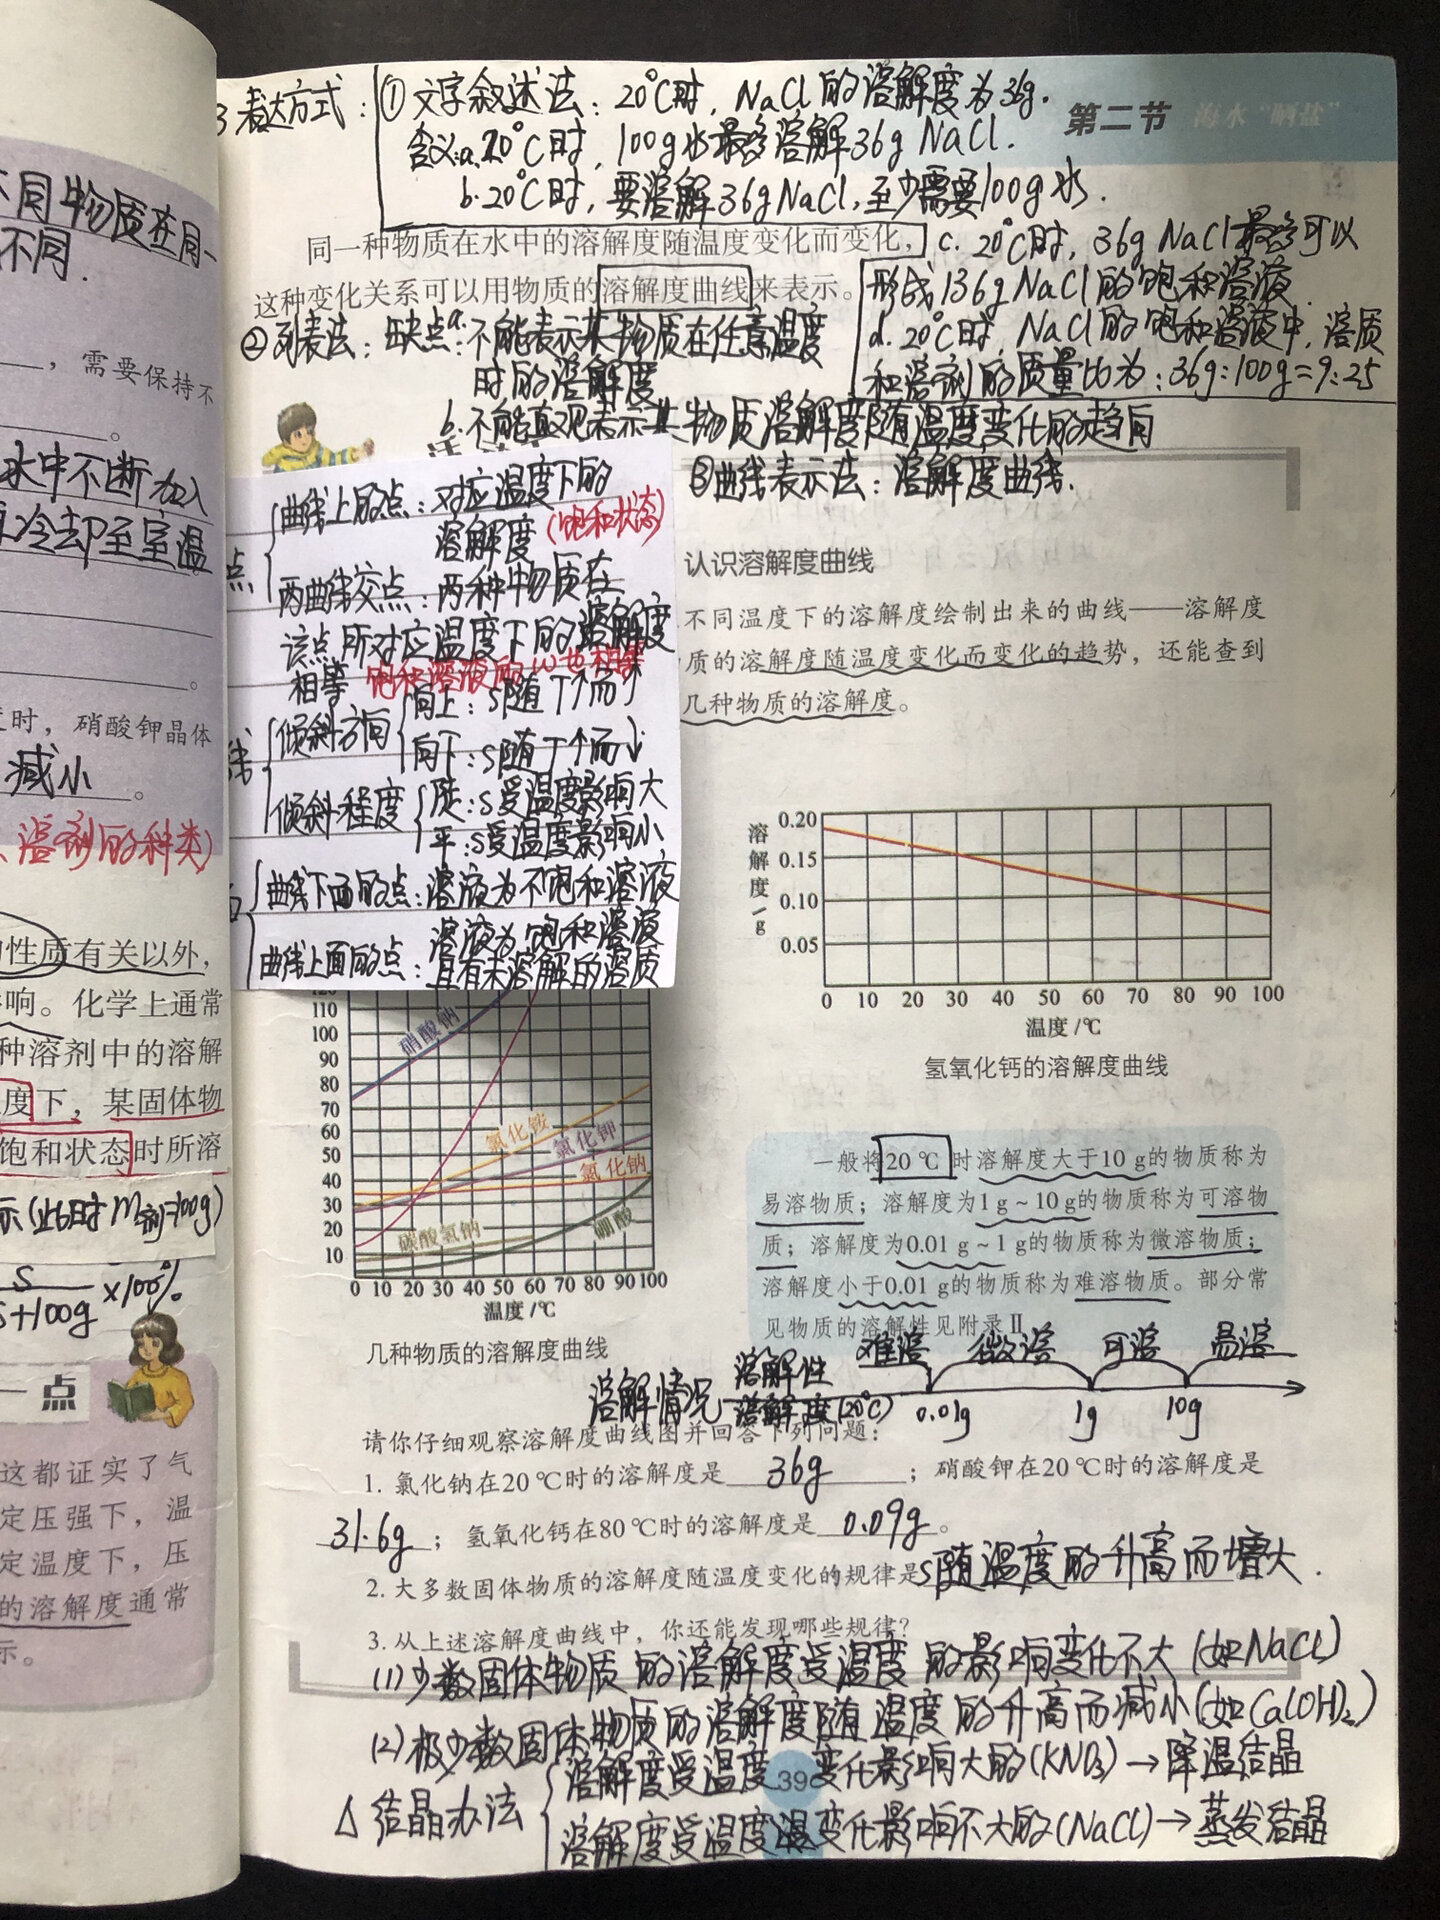 不同物质在同一
不同.
，需要保持不
。
水中不断加入
冷却至室温
。
时，硝酸钾晶体
减小。
、溶剂的种类)
性质有关以外，
响。化学上通常
种溶剂中的溶解
度下，某固体物
饱和状态时所溶
示(此时m剂=100g)
S
S+100g ×100%
一点
这都证实了气
定压强下，温
定温度下，压
的溶解度通常
示。
第二节 海水“晒盐”
3 表达方式：①文字叙述法：20℃时，NaCl的溶解度为36g.
含义:a.20℃时，100g水最多溶解36g NaCl.
b.20℃时，要溶解36gNaCl，至少需要100g水.
同一种物质在水中的溶解度随温度变化而变化，
这种变化关系可以用物质的溶解度曲线来表示。
c. 20℃时，36g NaCl最多可以
形成136g NaCl的饱和溶液.
d. 20℃时，NaCl的饱和溶液中，溶质
和溶剂的质量比为：36g:100g=9:25
②列表法：缺点:a.不能表示某物质在任意温度
时的溶解度
b.不能直观表示某物质溶解度随温度变化的趋向
③曲线表示法：溶解度曲线.
点
曲线上的点：对应温度下的
溶解度(饱和状态)
两曲线交点：两种物质在
该点所对应温度下的溶解度
相等 饱和溶液的ω也相等
线
倾斜方向 向上：S随T↑而↑
向下：S随T↑而↓
倾斜程度 陡：S受温度影响大
平：S受温度影响小
曲线下面的点：溶液为不饱和溶液
曲线上面的点：溶液为饱和溶液
且有未溶解的溶质
认识溶解度曲线
不同温度下的溶解度绘制出来的曲线——溶解度
质的溶解度随温度变化而变化的趋势，还能查到
几种物质的溶解度。
120
110
100
90
80
70
60
50
40
30
20
10
硝酸钠
氯化铵
氯化钾
氯化钠
碳酸氢钠
硼酸
0 10 20 30 40 50 60 70 80 90 100
温度/℃
几种物质的溶解度曲线
溶解度/g
0.20
0.15
0.10
0.05
0 10 20 30 40 50 60 70 80 90 100
温度/℃
氢氧化钙的溶解度曲线
一般将20 ℃时溶解度大于10 g的物质称为
易溶物质；溶解度为1 g ~ 10 g的物质称为可溶物
质；溶解度为0.01 g ~ 1 g的物质称为微溶物质；
溶解度小于0.01 g的物质称为难溶物质。部分常
见物质的溶解性见附录Ⅱ
难溶 微溶 可溶 易溶
溶解情况 溶解性
溶解度(20℃) 0.01g 1g 10g
请你仔细观察溶解度曲线图并回答下列问题：
1. 氯化钠在20 ℃时的溶解度是 36g ；硝酸钾在20 ℃时的溶解度是
31.6g ；氢氧化钙在80 ℃时的溶解度是 0.09g 。
2. 大多数固体物质的溶解度随温度变化的规律是S随温度的升高而增大.
3. 从上述溶解度曲线中，你还能发现哪些规律？
(1)少数固体物质的溶解度受温度的影响变化不大(如NaCl)
(2)极少数固体物质的溶解度随温度的升高而减小(如Ca(OH)2)
△结晶办法
溶解度受温度变化影响大的(KNO3)→降温结晶
39
溶解度受温度变化影响不大的(NaCl)→蒸发结晶